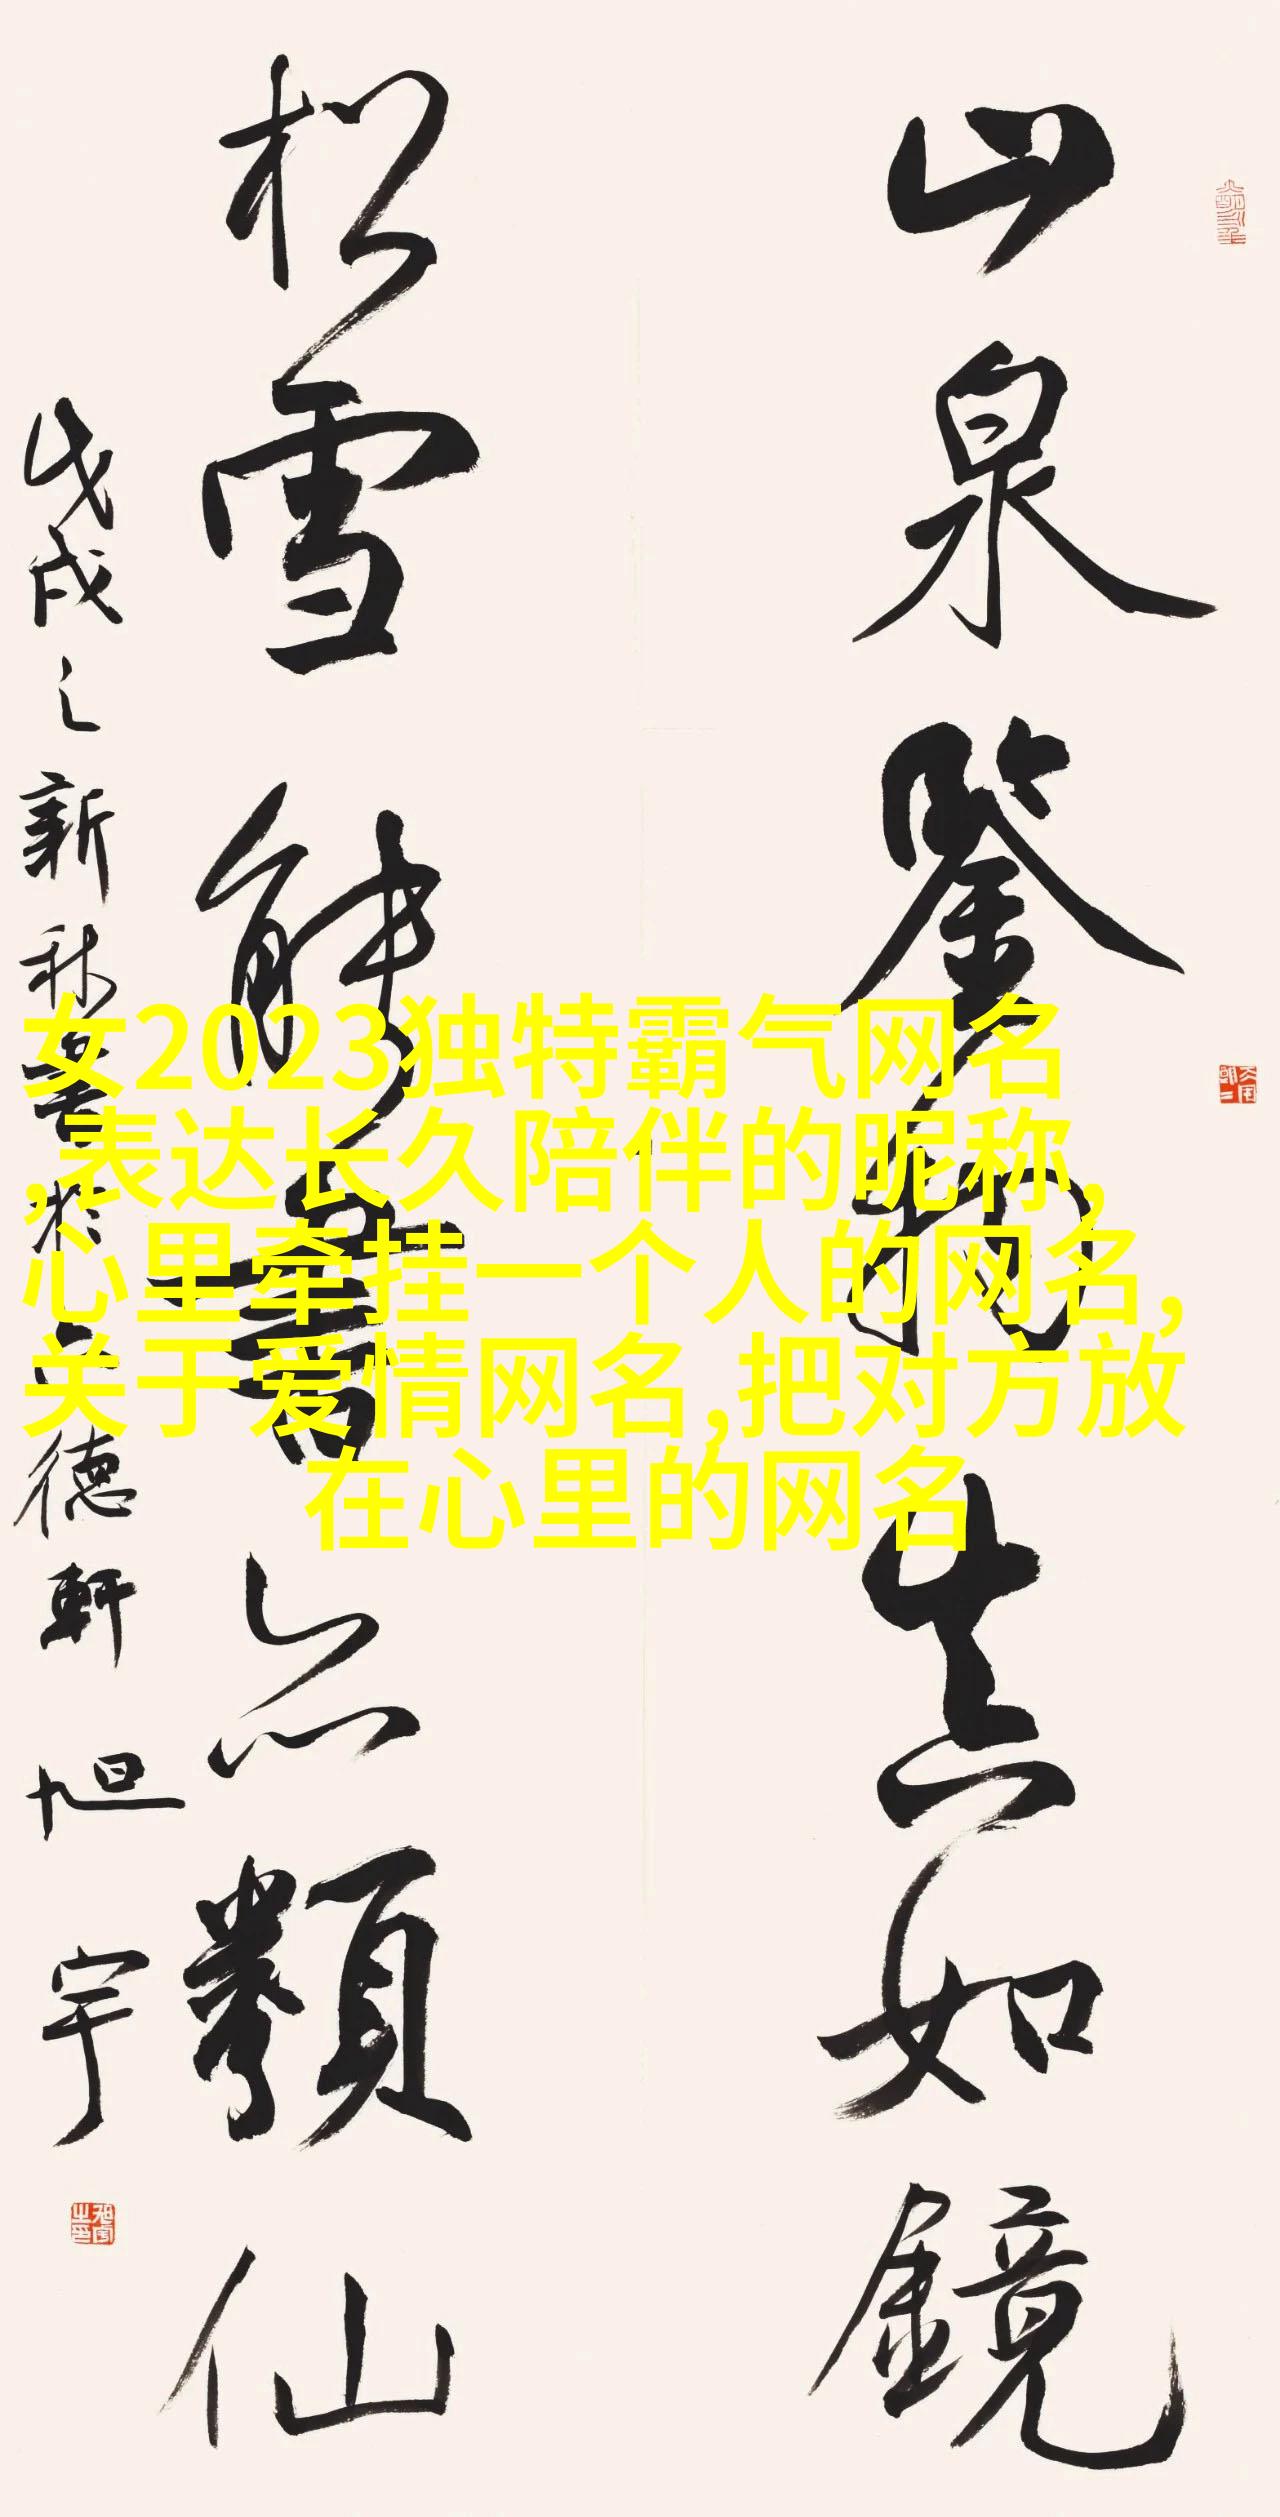 山泉鑒物真如鏡
松雪解書亦類仙
戊戌之新秋
德軒旭宇
女2023独特霸气网名
,表达长久陪伴的昵称,
心里牵挂一个人的网名,
关于爱情网名,把对方放
在心里的网名